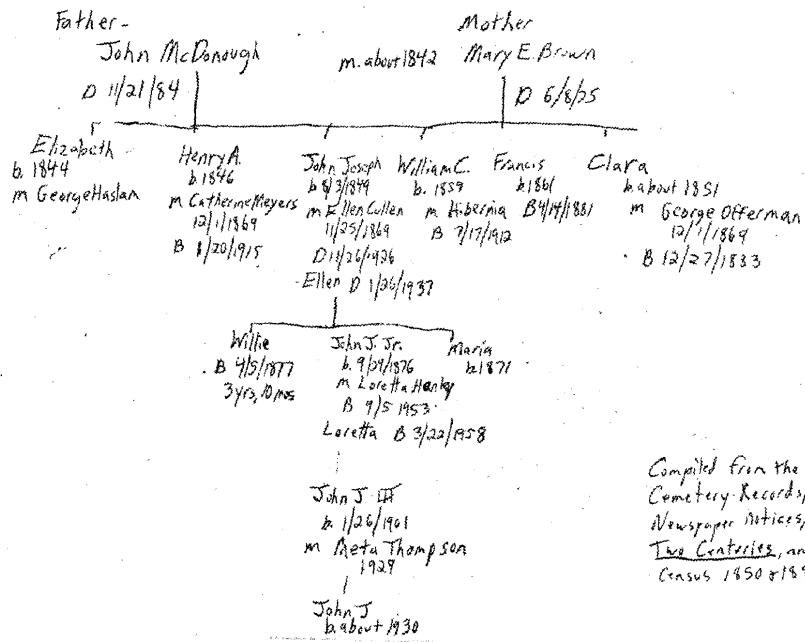 Father-
John McDonough
D 11/21/84
m. about 1842
Mother
Mary E. Brown
D 6/8/25
Elizabeth
b. 1844
m George Haslam
Henry A.
b. 1846
m Catherine Meyers
12/1/1869
B 1/20/1915
John Joseph
b 8/3/1849
m Ellen Cullen
11/25/1869
D 11/26/1926
Ellen D 1/26/1937
William C.
b. 1859
m Hibernia
B 7/17/1912
Francis
b 1861
B 4/14/1881
Clara
b. about 1851
m George Offerman
12/1/1869
B 12/27/1883
Willie
B 4/5/1877
3 yrs, 10 mos
John J. Jr.
b. 9/29/1876
m Loretta
B 9/5 1953
Loretta B 3/22/1958
Maria
b. 1871
John J III
b. 1/26/1901
m Meta Thompson
1929
John J
b. about 1930
Compiled from the
Cemetery Records,
Newspaper notices,
Two Centuries, an
Census 1850 & 18